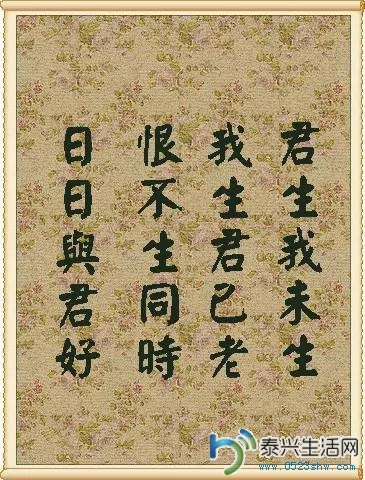 君生我未生
我生君已老
恨不生同時
日日與君好
泰兴生活网
www.0523shw.com